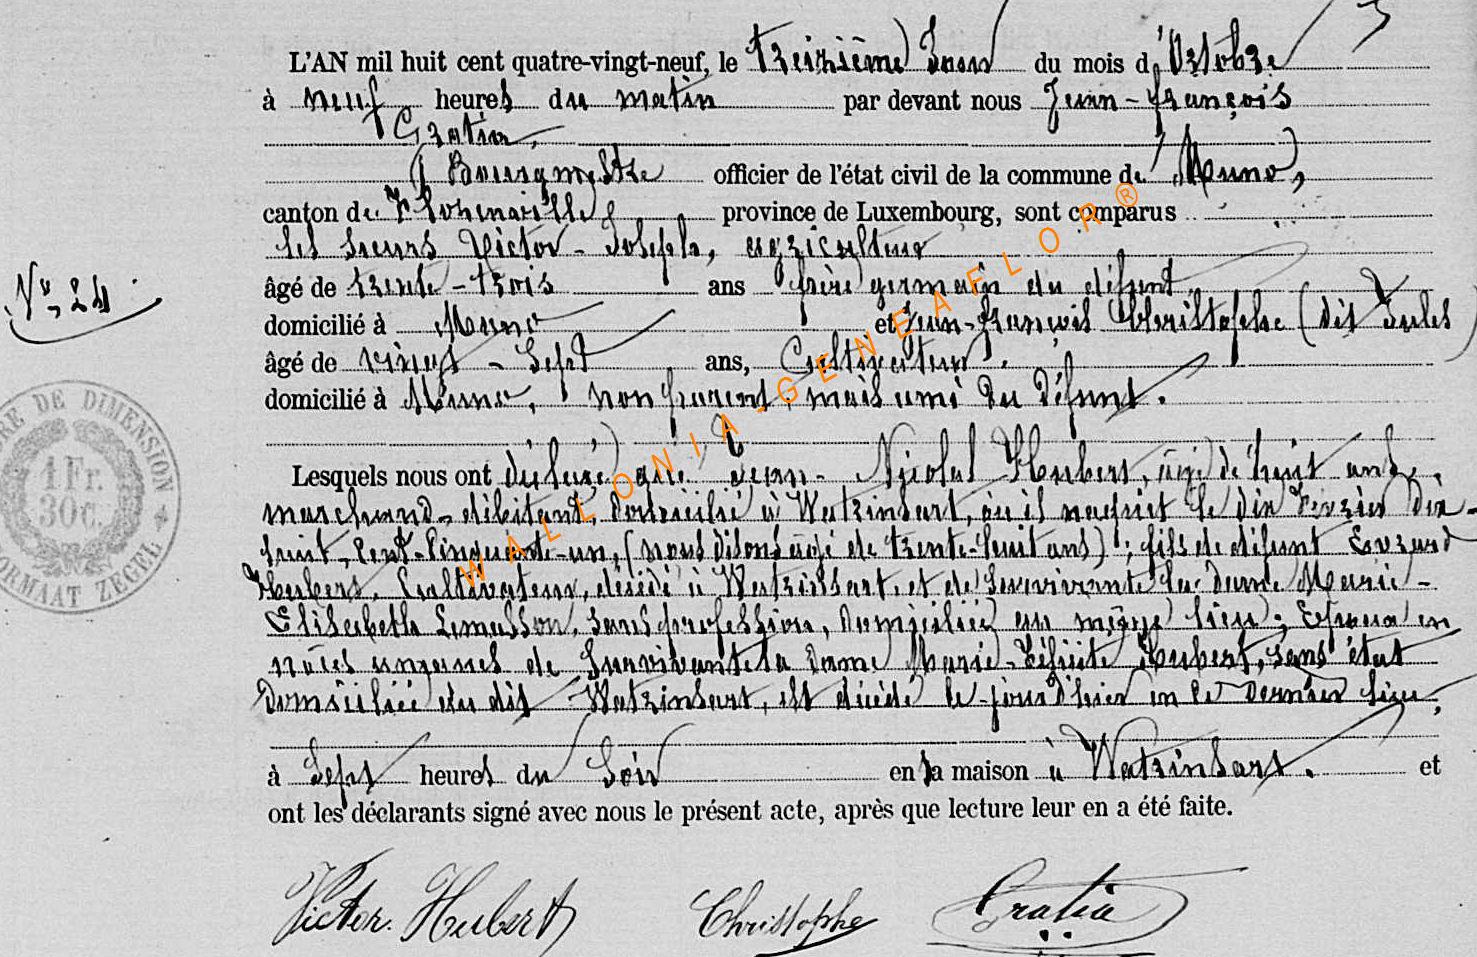 L'AN mil huit cent quatre-vingt-neuf, le treizième Jour du mois d'Octobre
à neuf heures du matin par devant nous Jean-François
Gratia,
Bourgmestre officier de l'état civil de la commune de Muno,
canton de Florenville, province de Luxembourg, sont comparus
les sieurs Victor-Joseph, agriculteur
âgé de trente-trois ans frère germain du défunt
domicilié à Muno et Jean-François Christophe (dit Jules)
âgé de vingt-sept ans, Cultivateur,
domicilié à Muno, non parent, mais ami du défunt.
No. 24
Lesquels nous ont déclaré que Jean-Nicolas Hubert, âgé de huit ans,
marchand-débitant, domicilié à Watrinsart, où il naquit le dix Février dix-
huit-cent-cinquante-un, (nous disons âgé de trente-huit ans); fils de défunt Evrard
Hubert, Cultivateur, décédé à Watrinsart, et de survivante la dame Marie-
Elisabeth Lemasson, sans profession, domiciliée au même lieu; Epoux en
noces uniques de survivante la dame Marie- Hubert, sans état
domiciliée au dit Watrinsart, est décédé le jour d'hier en ce dernier lieu,
à sept heures du soir en sa maison à Watrinsart. et
ont les déclarants signé avec nous le présent acte, après que lecture leur en a été faite.
Victor Hubert Christophe Gratia
TIMBRE DE DIMENSION
1 Fr.
30 c.
FORMAAT ZEGEL
WALLONIA-GENEAFLOR®